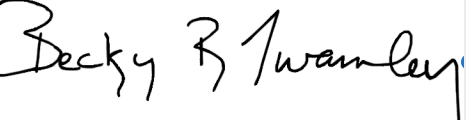 Becky R Twamley